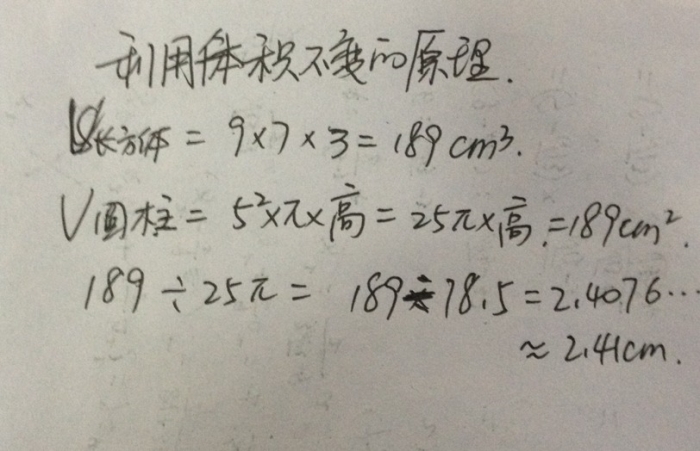 利用体积不变的原理.
V长方体 = 9×7×3 = 189 cm³.
V圆柱 = 5²×π×高 = 25π×高. = 189cm².
189 ÷ 25π = 189÷78.5 = 2.4076…
≈ 2.41cm.